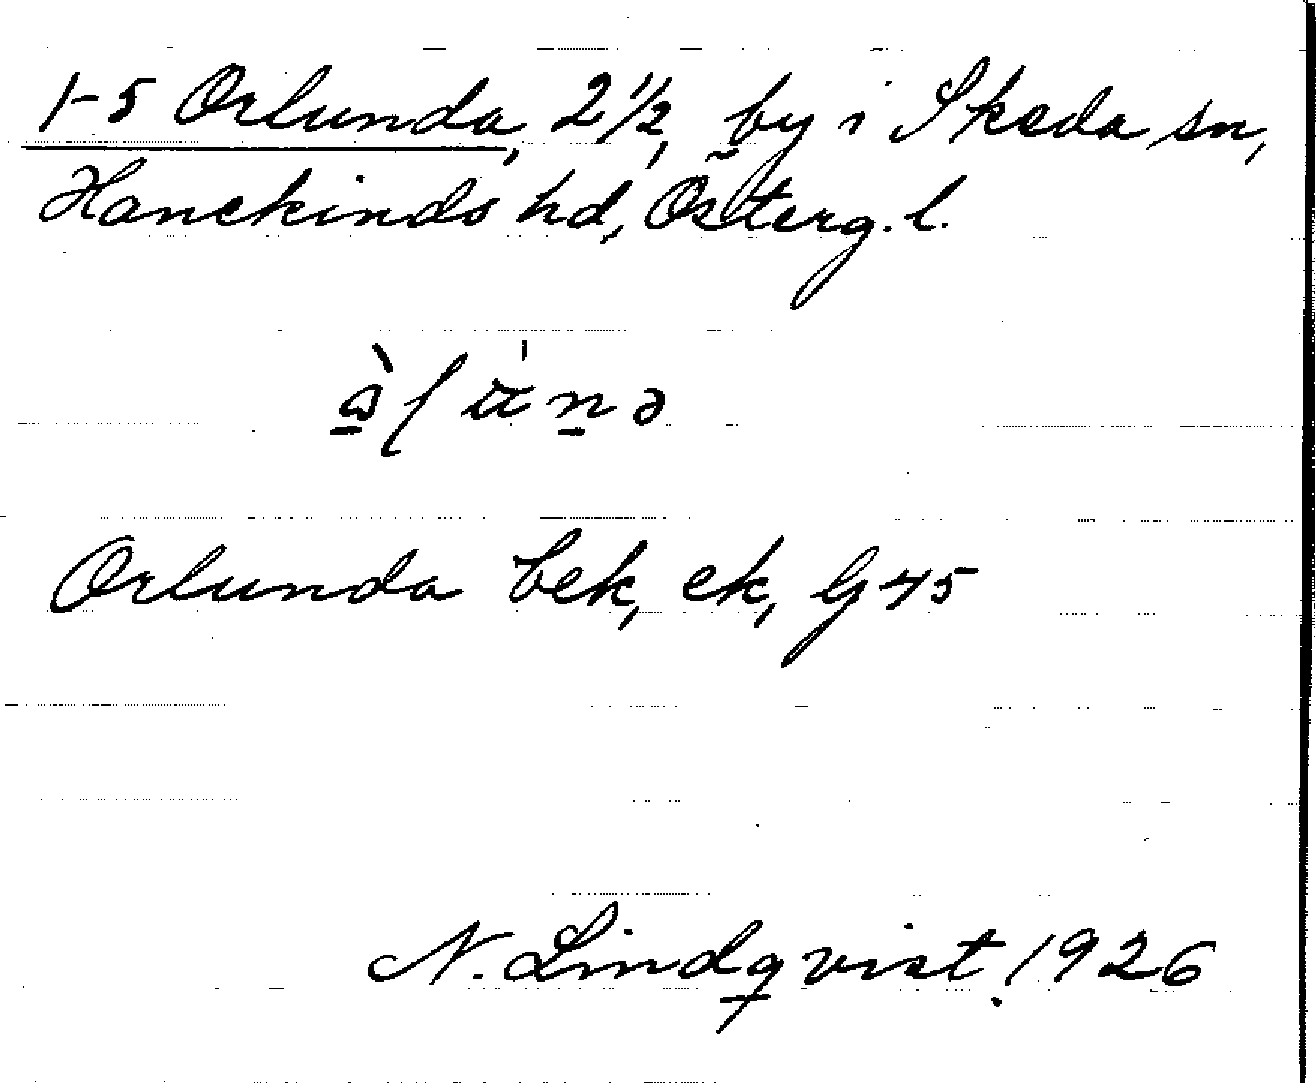 1-5 Orlunda, 2 1/2, by i Skeda sn,
Hanekinds hd, Österg. l.
Orlunda bek, ek, G45
N. Lindqvist. 1926